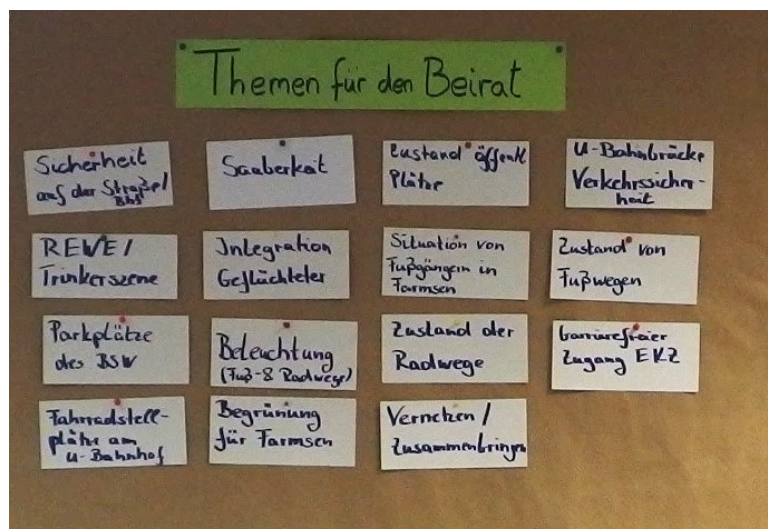 Themen für den Beirat
Sicherheit
auf der Straße/
Bhf
Sauberkeit
Zustand öffentl
Plätze
U-Bahnbrücke
Verkehrssicher-
heit
REWE/
Trinkerszene
Integration
Geflüchteter
Situation von
Fußgängern in
Farmsen
Zustand von
Fußwegen
Parkplätze
des BSW
Beleuchtung
(Fuß- & Radwege)
Zustand der
Radwege
barrierefreier
Zugang EKZ
Fahrradstell-
plätze am
U-Bahnhof
Begrünung
für Farmsen
Vernetzen/
Zusammenbringen